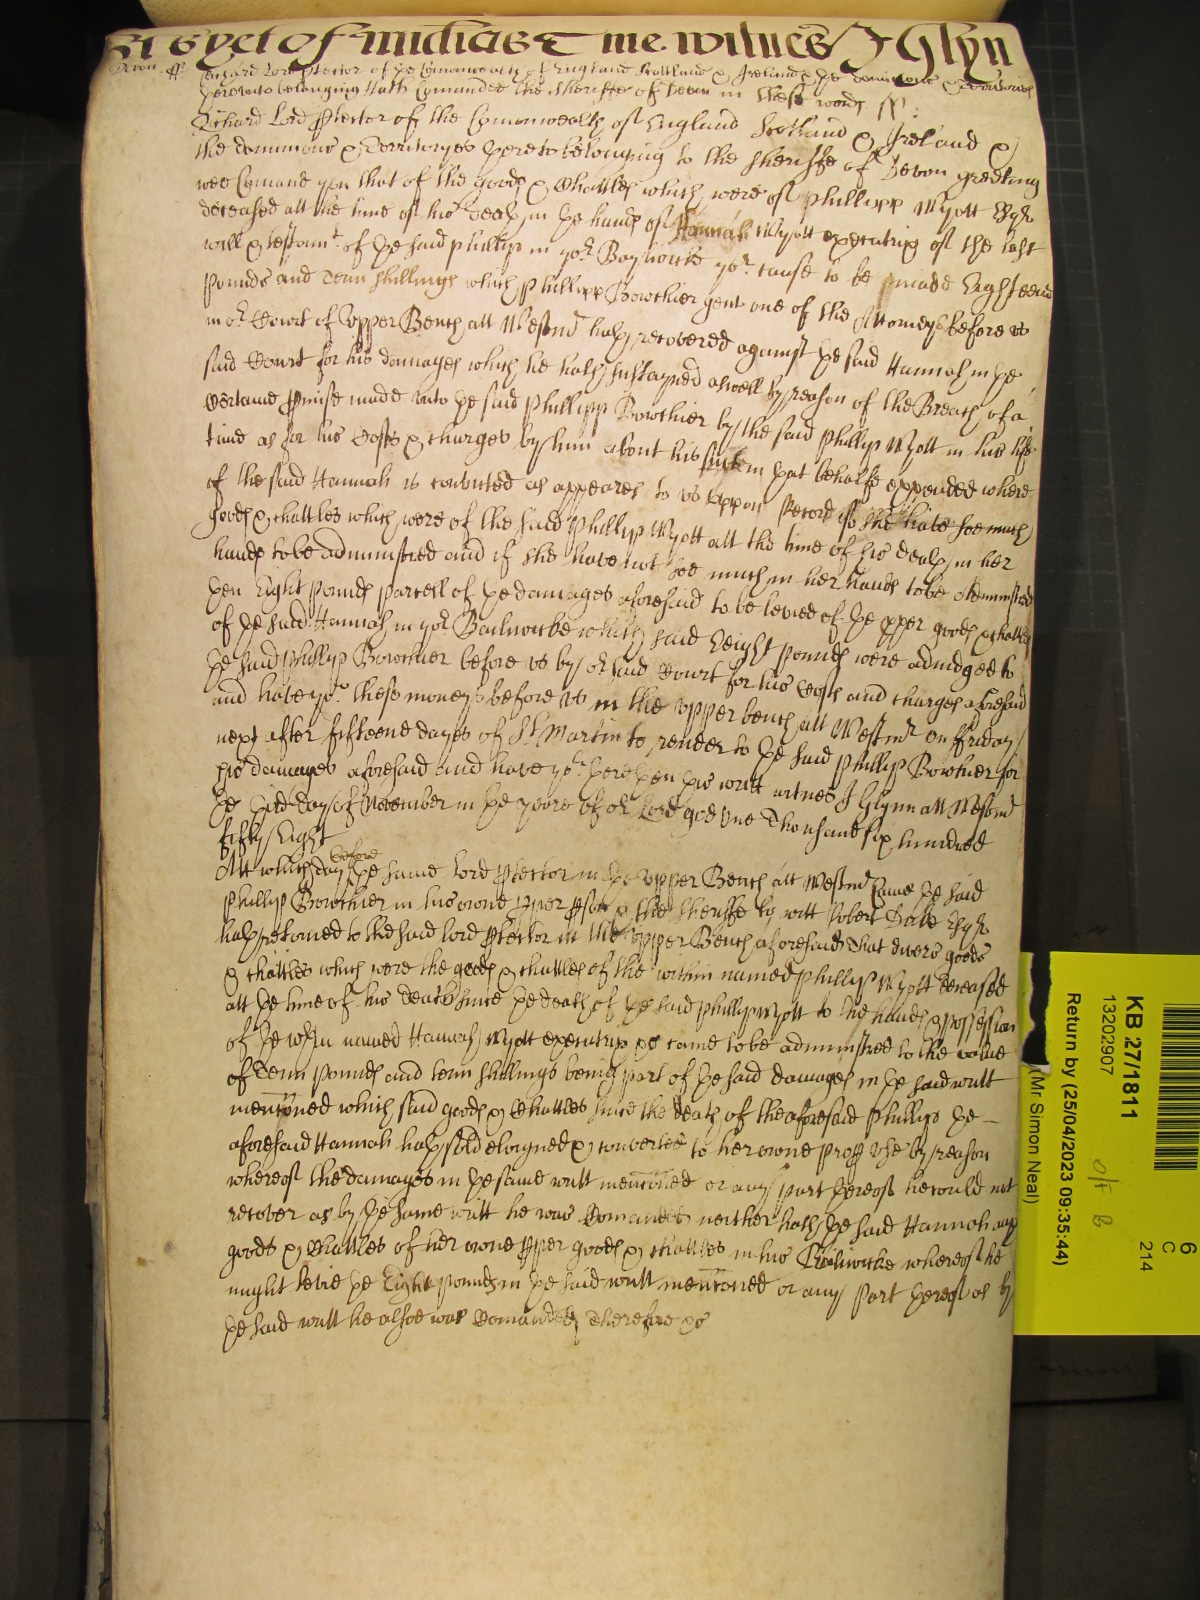 yet of Michas T me witnes J Glyn
Devon ss Richard Lord Ptector of ye Comonwealth of England Scottland & Ireland & ye dominions & Territories
thereunto belonging Hath Comanded the Sheriffe of Devon in these words ss:
Richard Lord Ptector of the Comonwealth of England Scotland & Ireland &
the dominions & Territoryes thereto belonging to the Sheriffe of Devon greeting
wee Comand you that of the goods & Chattles which were of Phillipp Wyott Esqr
deceased att the time of his death in the hands of Hannah Wyott executrix of the last
will & testamt of the said Phillip in yor Baylwicke yor cause to be made Eighteene
Pounds and Tenn shillings which Phillipp Bowthier gent one of the Attorneys before us
in or Court of Upper Bench att Westmr hath recovered against the said Hannah in the
said Court for his damages which he hath sustayned aswell by reason of the Breach of a
Certaine Pmise made unto the said Phillipp Bowthier by the said Phillip Wyott in his life
time as for his Costs & charges by him about his suite in that behalfe expended where
of the said Hannah is convicted as appeares to us uppon Record if she have soe much
goods & chattles which were of the said Phillip Wyott att the time of his death in her
hands to be administred and if she have not soe much in her hands to be administred
then Eight Pounds parcell of the damages aforesaid to be levied of the pper goods & chattles
of the said Hannah in yor Bailiwicke which said Eeight pounds were adiudged to
the said Phillip Bowthier before us by or said Court for his Costs and charges aforesaid
and have yor these moneys before us in the upper bench att Westmr on Friday
next after fifteene dayes of St Martin to render to the said Phillip Bowthier for
his damages aforesaid and have yor there then this writt witnes J Glynn att Westmr
the day of November in the yeere of or Lord god One Thousand six hundred
fifty Eight
Att which day before the same Lord Ptector in the Upper Bench att Westmr Came the said
Phillip Bowthier in his owne pper pson & the Sheriffe by witt Robert Esqr
hath retorned to the said lord Ptector in the upper Bench aforesaid That divers goods
& chattles which were the goods & chattles of the within named Phillip Wyott deceased
att the time of his death since the death of the said Phillip Wyott to the hands & possession
of the within named Hannah Wyott executrix &c came to be administred to the value
of Tenn pounds and tenn shillings being part of the said damages in the said writt
mentioned which said goods & Chattles since the death of the aforesaid Phillip the
aforesaid Hannah hath sold eloigned & converted to her owne prop use by reason
whereof the damages in the same writt mentioned or any part thereof he could not
recover as by the same writt he was Comanded neither hath the said Hannah any
goods & Chattles of her owne pper goods & chattles in his Bailiwicke whereof he
might levie the Eight pounds in the said writt mentioned or any Part thereof as by
the said writt he alsoe was Comanded Therefore &c
KB 27/1811
13202907
Return by (25/04/2023 09:35:44)
(Mr Simon Neal)
O/F B
6
C
214